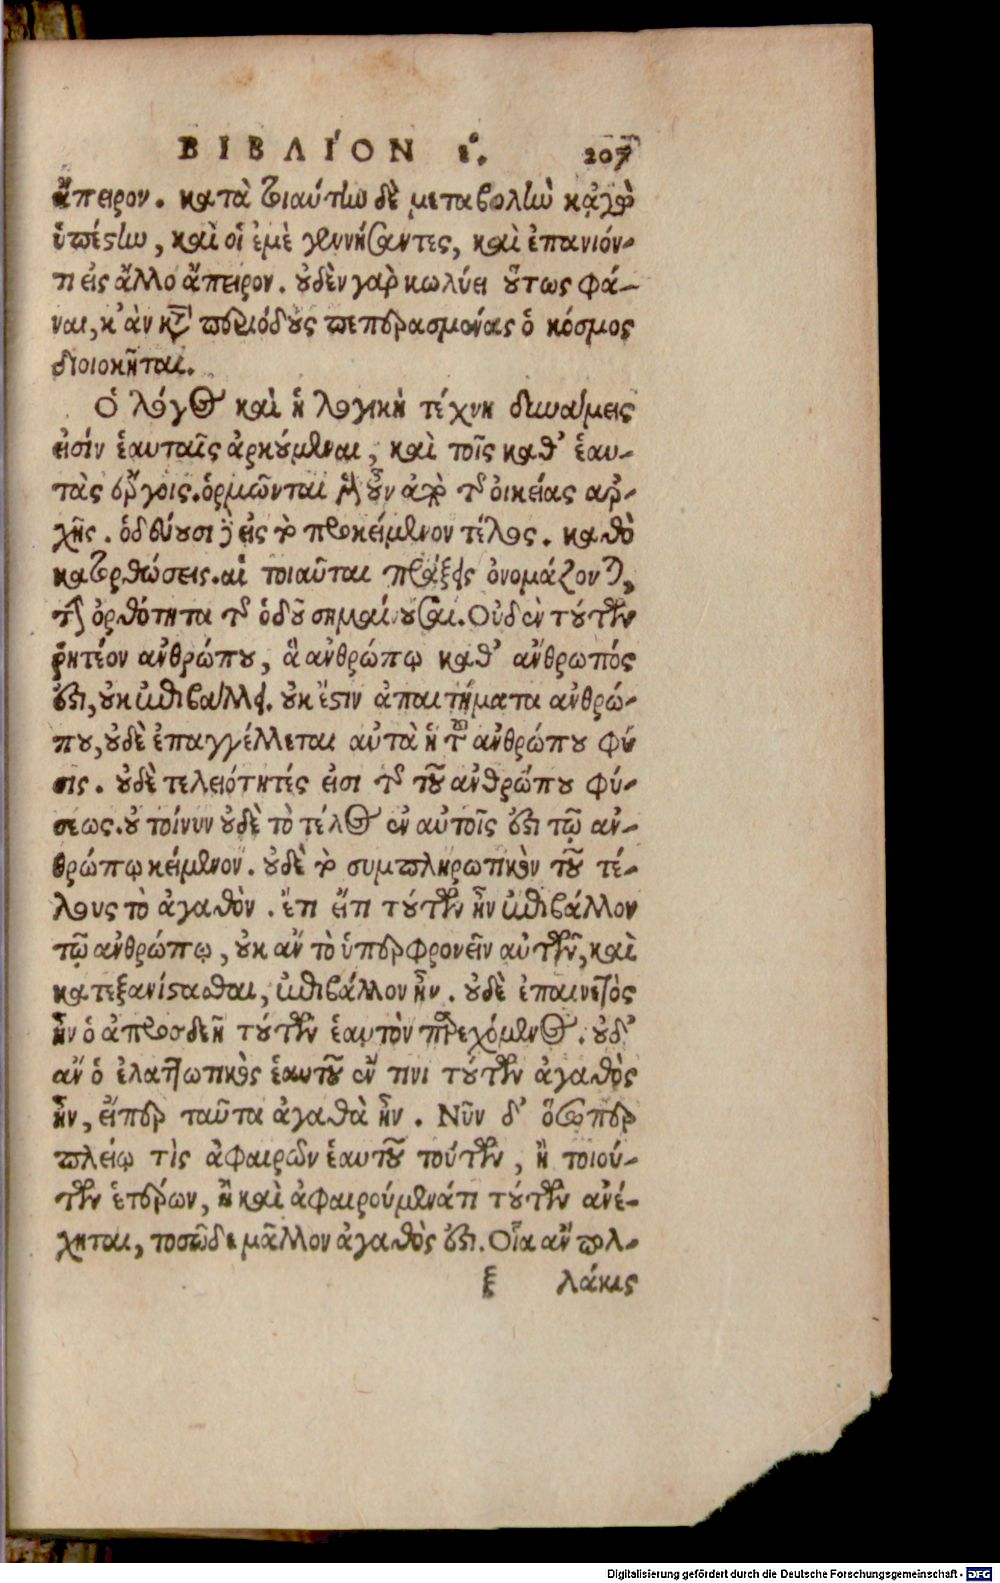 ΒΙΒΛΙΌΝ ε. 207
ἄπειρον. κατὰ τοιαύτην δὲ μεταβολὴν κᾀγὼ
ὑπέστην, καὶ οἱ ἐμὲ γεννήσαντες, καὶ ἐπανιόν-
τι εἰς ἄλλο ἄπειρον. οὐδὲν γὰρ κωλύει οὕτως φά-
ναι, κ᾽ ἂν κατὰ περιόδους πεπερασμένας ὁ κόσμος
διοιοκῆται.
Ὁ λόγος καὶ ἡ λογικὴ τέχνη δυνάμεις
εἰσίν ἑαυταῖς ἀρκούμεναι, καὶ τοῖς καθ᾽ ἑαυ-
τὰς ἔργοις. ὁρμῶνται μὲν οὖν ἀπὸ τῆς οἰκείας ἀρ-
χῆς. ὁδεύουσι δὲ εἰς τὸ προκείμενον τέλος. καθὸ
κατορθώσεις. αἱ τοιαῦται πράξεις ὀνομάζονται,
τὴν ὀρθότητα τῆς ὁδοῦ σημαίνουσαι. Οὐδὲν τούτων
ῥητέον ἀνθρώπου, ἃ ἀνθρώπῳ καθ᾽ ἄνθρωπός
ἐστι, οὐκ ἐπιβάλλει. οὐκ ἔστιν ἀπαιτήματα ἀνθρώ-
που, οὐδὲ ἐπαγγέλλεται αὐτὰ ἡ τοῦ ἀνθρώπου φύ
σις. οὐδὲ τελειότητές εἰσι τῆς τοῦ ἀνθρώπου φύ-
σεως. οὐ τοίνυν οὐδὲ τὸ τέλος ἐν αὐτοῖς ἐστι τῷ ἀν-
θρώπῳ κείμενον. οὐδὲ τὸ συμπληρωτικὸν τοῦ τέ-
λους τὸ ἀγαθὸν. ἔτι εἴ τι τούτων ἦν ἐπιβάλλον
τῷ ἀνθρώπῳ, οὐκ ἂν τὸ ὑπερφρονεῖν αὐτῶν, καὶ
κατεξανίστασθαι, ἐπιβάλλον ἦν. οὐδὲ ἐπαινετὸς
ἦν ὁ ἀπροσδεῆ τούτων ἑαυτὸν παρεχόμενος. οὐδ᾽
ἂν ὁ ἐλαττωτικὸς ἑαυτοῦ ἔν τινι τούτων ἀγαθὸς
ἦν, εἴπερ ταῦτα ἀγαθὰ ἦν. Νῦν δ᾽ ὅσῳπερ
πλείῳ τὶς ἀφαιρῶν ἑαυτοῦ τούτων, ἢ τοιού-
των ἑτέρων, ἢ καὶ ἀφαιρούμενάτι τούτων ἀνέ-
χηται, τοσῶδε μᾶλλον ἀγαθὸς ἐστι. Οἷα ἂν πολ-
ξ λάκις
Digitalisierung gefördert durch die Deutsche Forschungsgemeinschaft - DFG